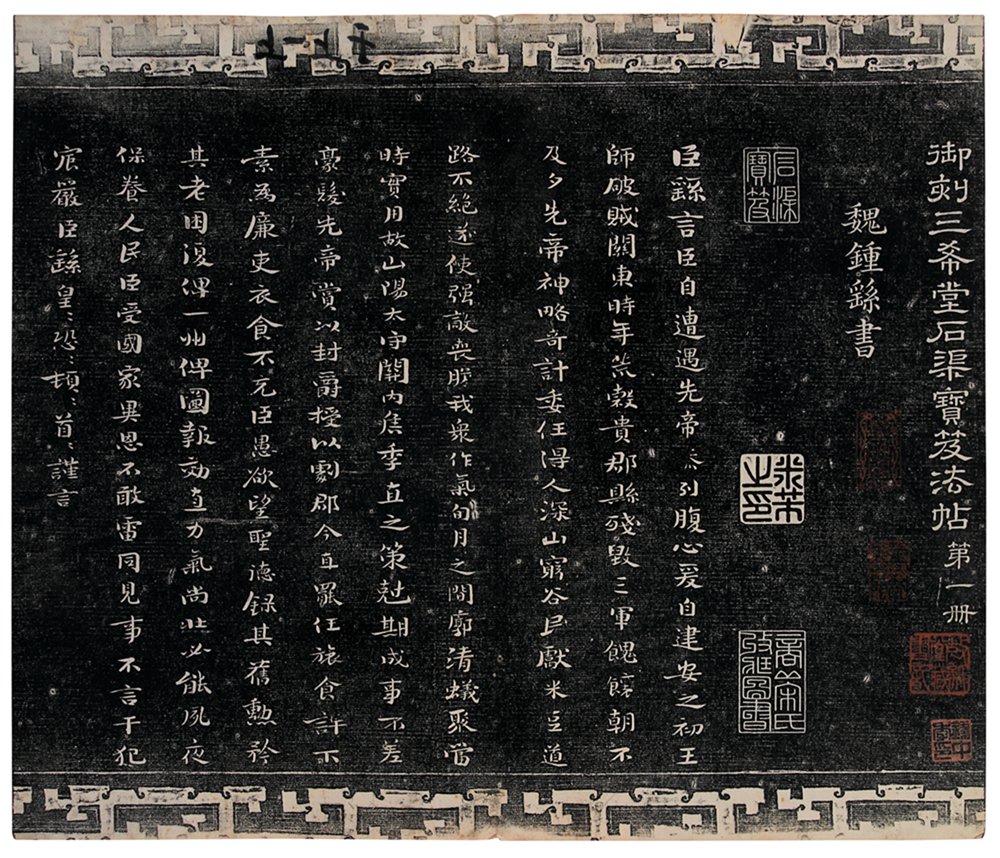 御刻三希堂石渠寶笈法帖第一册
魏鍾繇書
石渠寶笈
米芾之印
臣繇言臣自遭遇先帝忝列腹心爰自建安之初王
師破賊關東時年荒穀貴郡縣殘毀三軍餽饟朝不
及夕先帝神略奇計委任得人深山窮谷民獻米豆道
路不絕遂使强敵喪膽我衆作氣旬月之間廓清蟻聚當
時實用故山陽太守關内侯季直之策尅期成事不差
豪髮先帝賞以封爵授以劇郡今直罷任旅食許下
素為廉吏衣食不充臣愚欲望聖德録其舊勳矜
其老困復俾一州俾圖報効直力氣尚壯必能夙夜
保養人民臣受國家異恩不敢雷同見事不言干犯
宸嚴臣繇皇〻恐〻頓〻首〻謹言